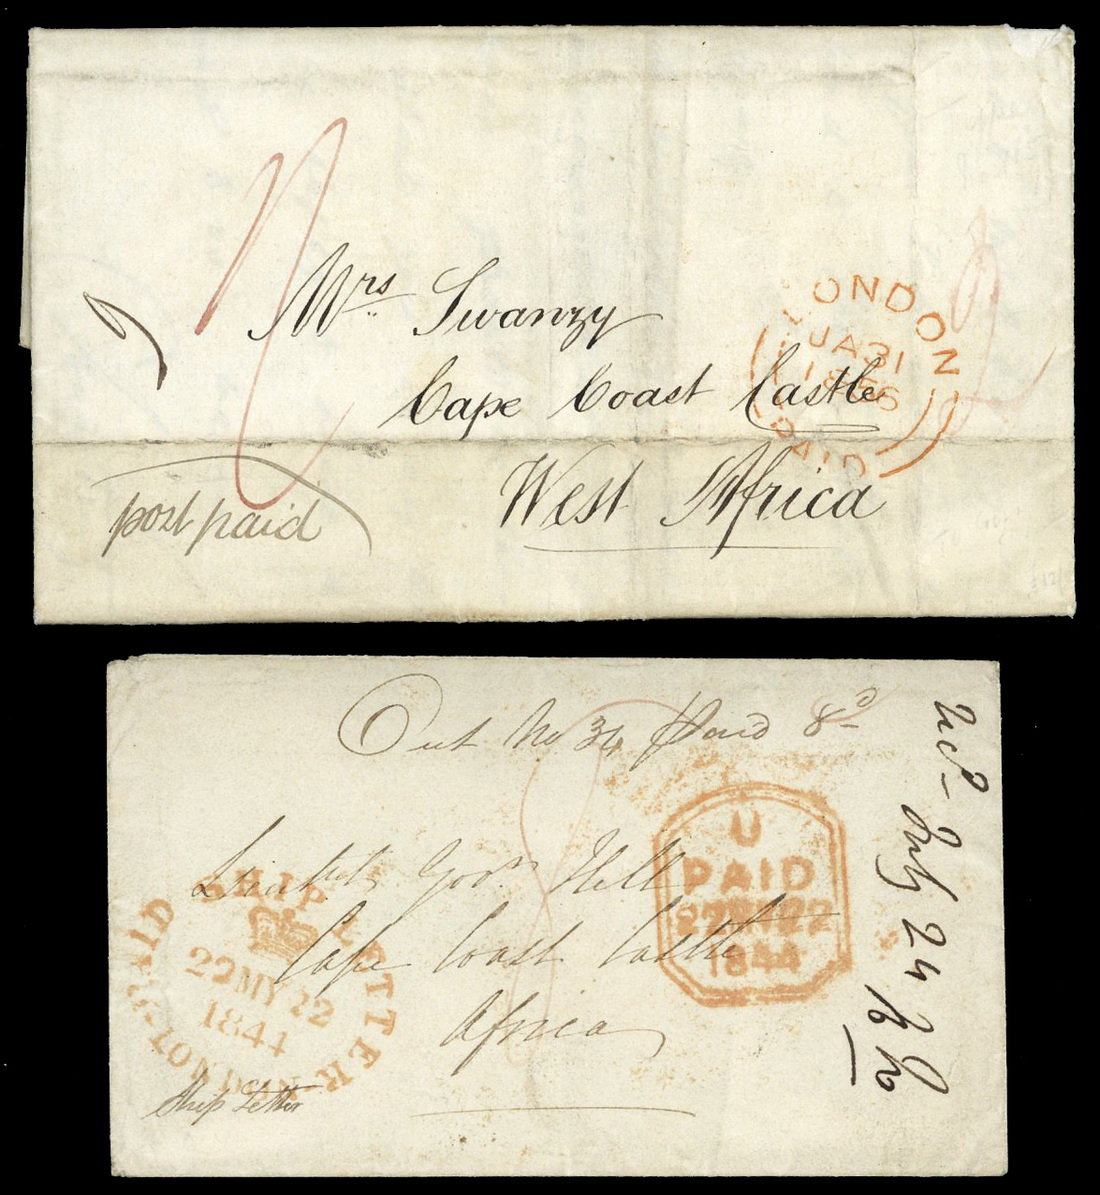 Mrs Swanzy
Cape Coast Castle
West Africa
post paid
LONDON
JA 31
1856
PAID
2
Out No 34 Paid 8d
Lieutt Govr Hill
Cape Coast Castle
Africa
Ship Letter
PAID SHIP LETTER
22 MY 22
1844
LONDON
U
PAID
22 MY 22
1844
recd - July 24